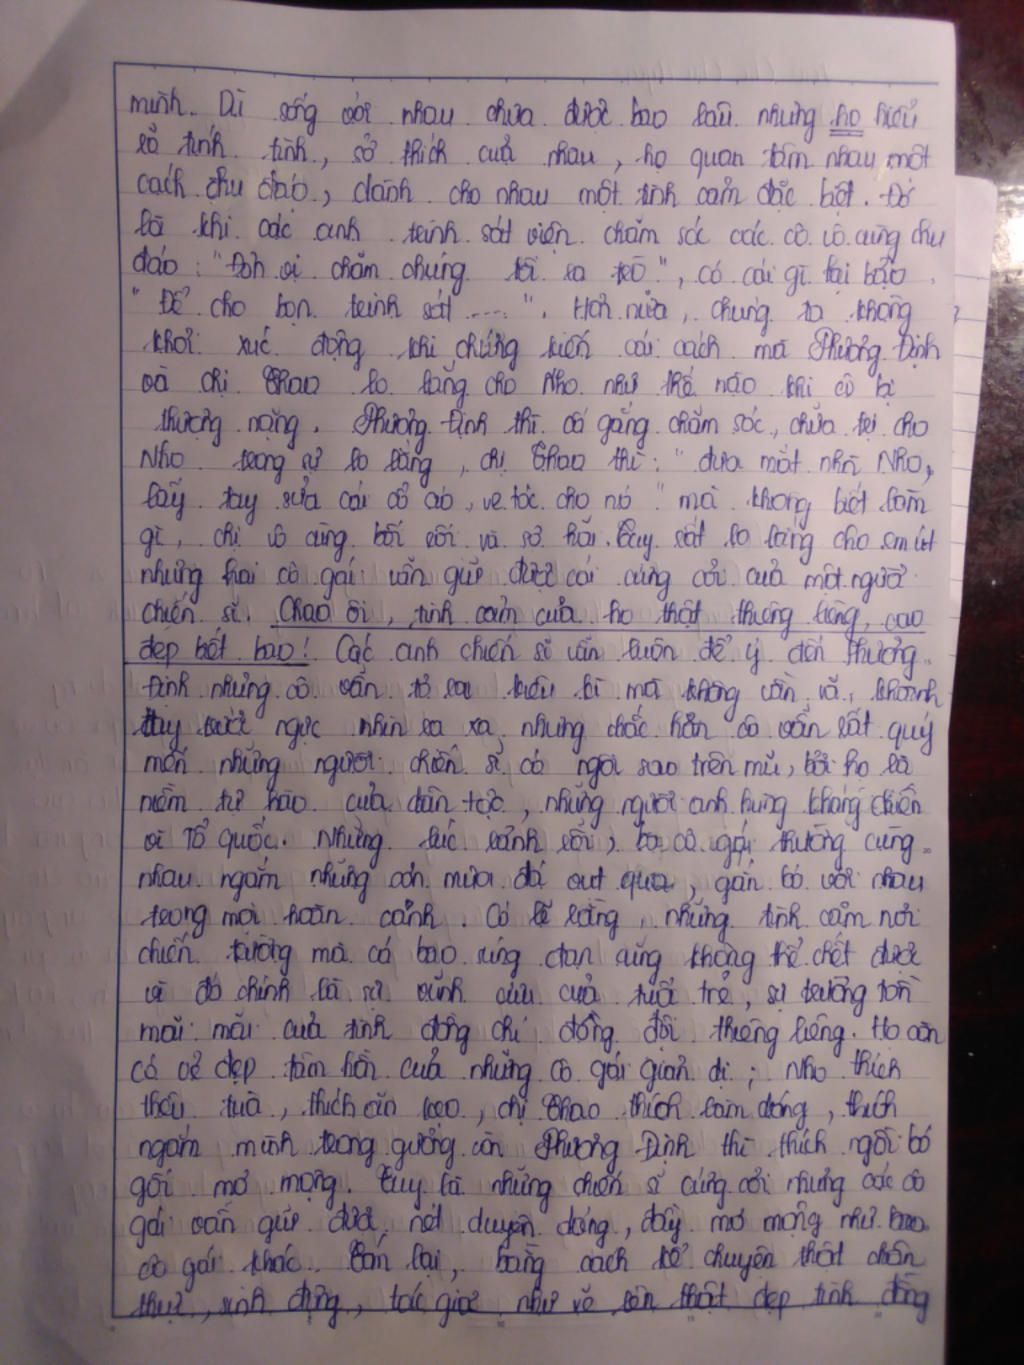 mình. Dù sống với nhau chưa được bao lâu nhưng họ hiểu
rõ tính tình, sở thích của nhau, họ quan tâm nhau một
cách chu đáo, dành cho nhau một tình cảm đặc biệt. Đó
là khi các anh trinh sát viên chăm sóc các cô vô cùng chu
đáo: "Đơn vị chăm chúng tôi ra trò", có cái gì lại bảo
"Để cho bọn trinh sát ....". Hơn nữa, chúng ta không
khỏi xúc động khi chứng kiến cái cách mà Phương Định
và chị Thao lo lắng cho Nho như thế nào khi cô bị
thương nặng. Phương Định thì cố gắng chăm sóc, chữa trị cho
Nho trong sự lo lắng, chị Thao thì: "đưa mắt nhìn Nho,
lấy tay sửa cái cổ áo, ve tóc cho nó" mà không biết làm
gì, chị vô cùng bối rối và sợ hãi. Tuy rất lo lắng cho em út
nhưng hai cô gái vẫn giữ được cái cứng cỏi của một người
chiến sĩ. Chao ôi, tình cảm của họ thật thiêng liêng, cao
đẹp biết bao! Các anh chiến sĩ vẫn luôn để ý đến Phương
Định nhưng cô vẫn tỏ ra kiêu kì mà không vồn vã, khoanh
tay trước ngực nhìn ra xa, nhưng chắc hẳn cô vẫn rất quý
mến những người chiến sĩ có ngôi sao trên mũ, bởi họ là
niềm tự hào của dân tộc, những người anh hùng kháng chiến
vì Tổ quốc. Những lúc rảnh rỗi, ba cô gái thường cùng
nhau ngắm những cơn mưa đá vụt qua, gắn bó với nhau
trong mọi hoàn cảnh. Có lẽ rằng, những tình cảm nơi
chiến trường mà có bao súng đạn cũng không thể chết được
vì đó chính là sự vĩnh cửu của tuổi trẻ, sự trường tồn
mãi mãi của tình đồng chí đồng đội thiêng liêng. Họ còn
có vẻ đẹp tâm hồn của những cô gái giản dị; Nho thích
thêu thùa, thích ăn kẹo, chị Thao thích làm dáng, thích
ngắm mình trong gương còn Phương Định thì thích ngồi bó
gối mơ mộng. Tuy là những chiến sĩ cứng cỏi nhưng các cô
gái vẫn giữ được nét duyên dáng, đầy mơ mộng như bao
cô gái khác. Tóm lại, bằng cách kể chuyện thật chân
thực, sinh động, tác giả như vẽ lên thật đẹp tình đồng